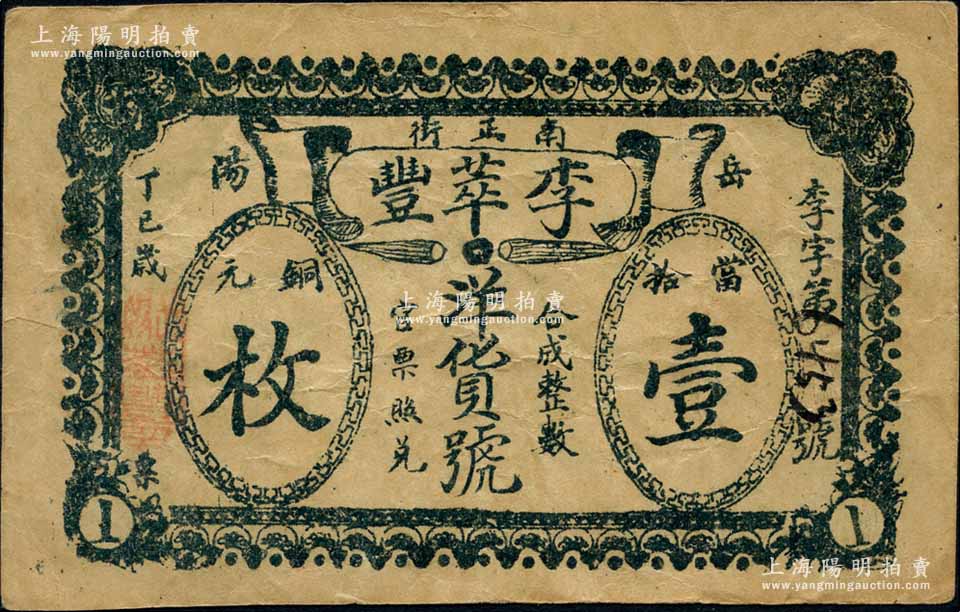 上海陽明拍賣
www.yangmingauction.com
上海陽明拍賣
www.yangmingauction.com
南正街
岳陽
李萃豐
洋貨號
李字第
號
當拾
壹
銅元
枚
成整數
票照兑
丁巳歲
票
1
1
上海陽明拍賣
www.yangmingauction.com
上海陽明拍賣
www.yangmingauction.com